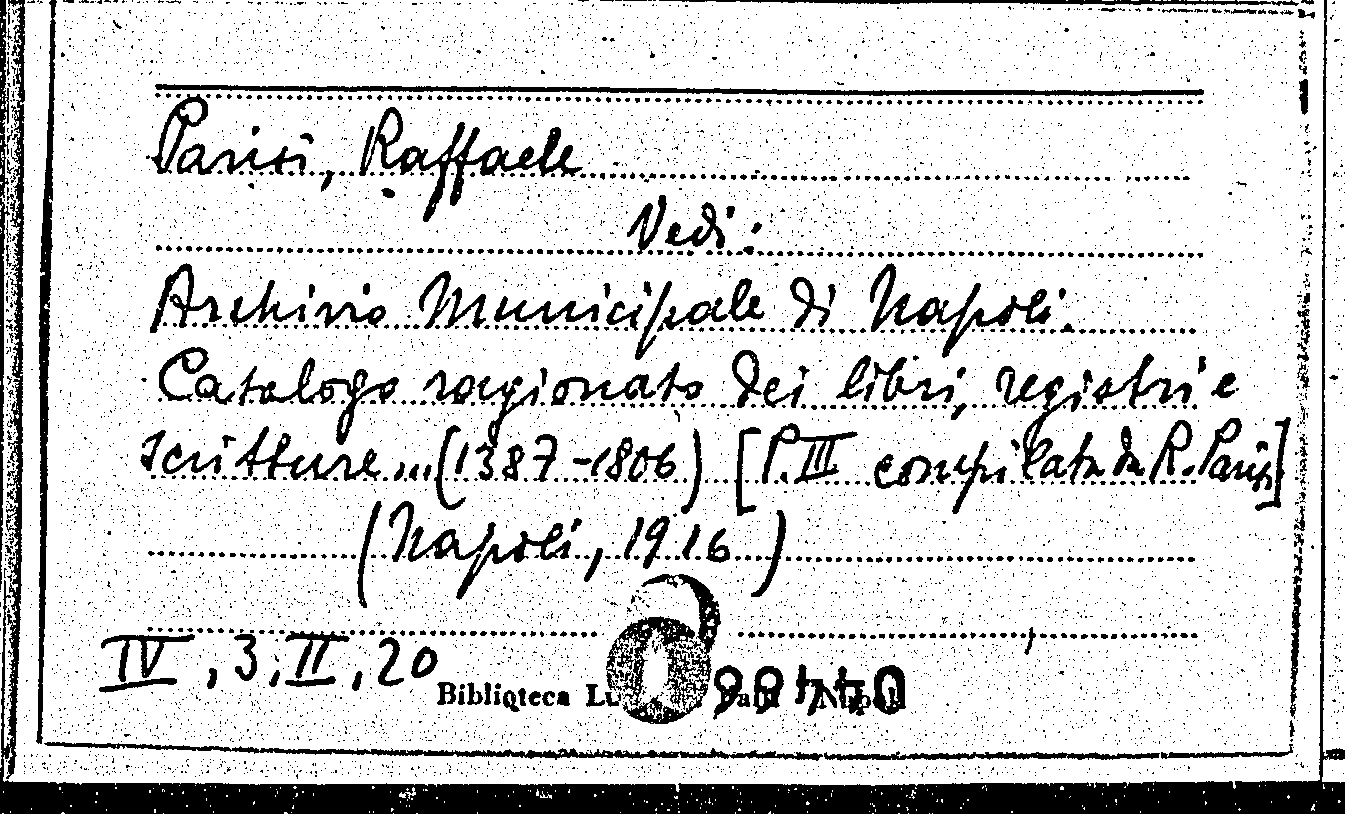 Parisi, Raffaele
Vedi:
Archivio Municipale di Napoli.
Catalogo ragionato dei libri, registri e
scritture...(1387-1806) [P.III compilata da R. Parisi]
(Napoli, 1916)
IV, 3, II, 20
Biblioteca